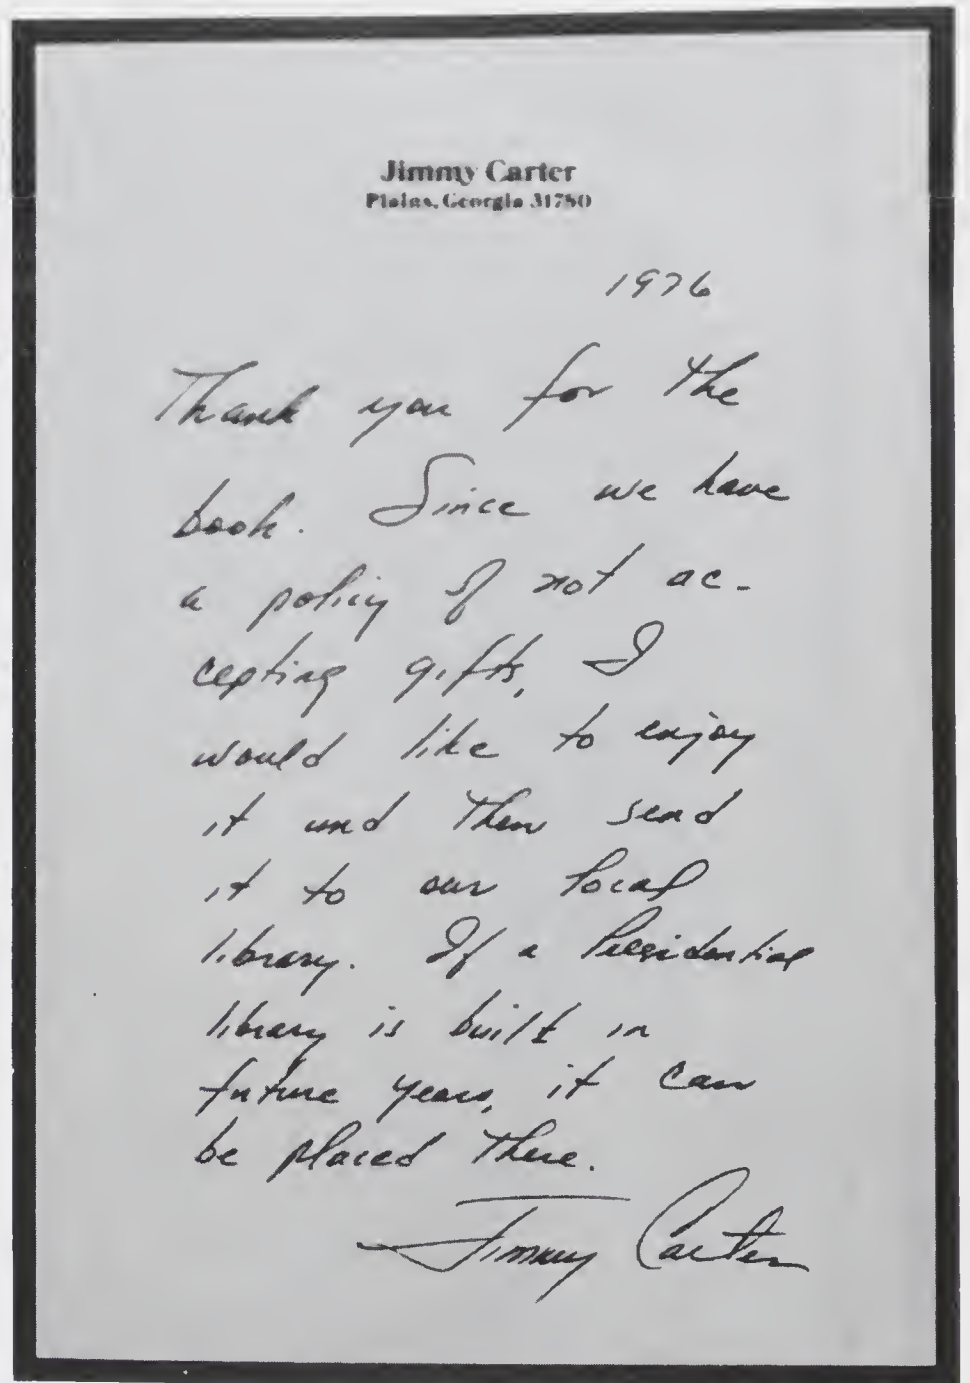 Jimmy Carter
Plains, Georgia 31780
1976
Thank you for the
book. Since we have
a policy of not ac-
cepting gifts, I
would like to enjoy
it and then send
it to our local
library. If a Presidential
library is built in
future years, it can
be placed there.
Jimmy Carter